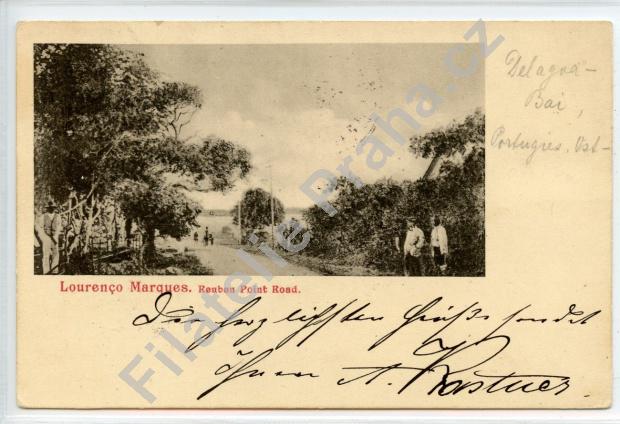 Delagoa-
Bai,
Portugies. Ost-
Lourenço Marques. Reuben Point Road.
Die herzlichsten Grüße sendet
Ihnen A. Kastner.
Filatelie Praha.cz